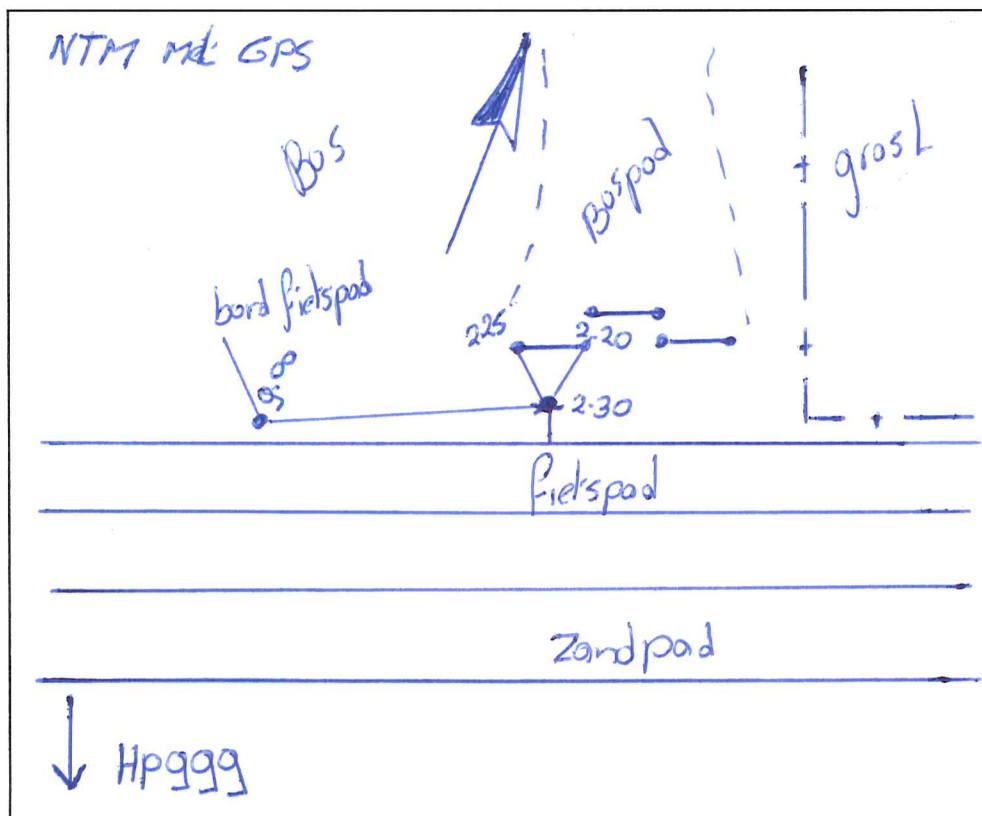 NTM met GPS
Bos
Bospad
grasL
bord fietspad
2.25
2.20
9.00
2.30
fietspad
Zandpad
Hpggg